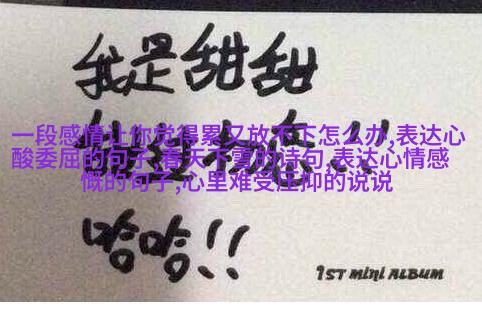 我是甜甜
一段感情让你觉得累又放不下怎么办,表达心
酸委屈的句子,春天下雪的诗句,表达心情感
慨的句子,心里难受压抑的说说
哈哈!!
1ST MINI ALBUM